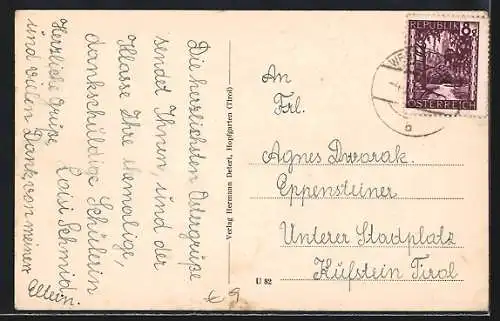 Die herzlichsten Ostergrüße
sendet Ihnen, und der
Klasse Ihre ehemalige,
dankschuldige Schülerin
Loisi Schmid.
Herzliche Grüße
und vielen Dank von meinen
Eltern.
Verlag Hermann Deierl, Hopfgarten (Tirol)
U 82
REPUBLIK
8g
ÖSTERREICH
An
Frl.
Agnes Dworak.
Eppensteiner
Unterer Stadplatz
Kufstein Tirol